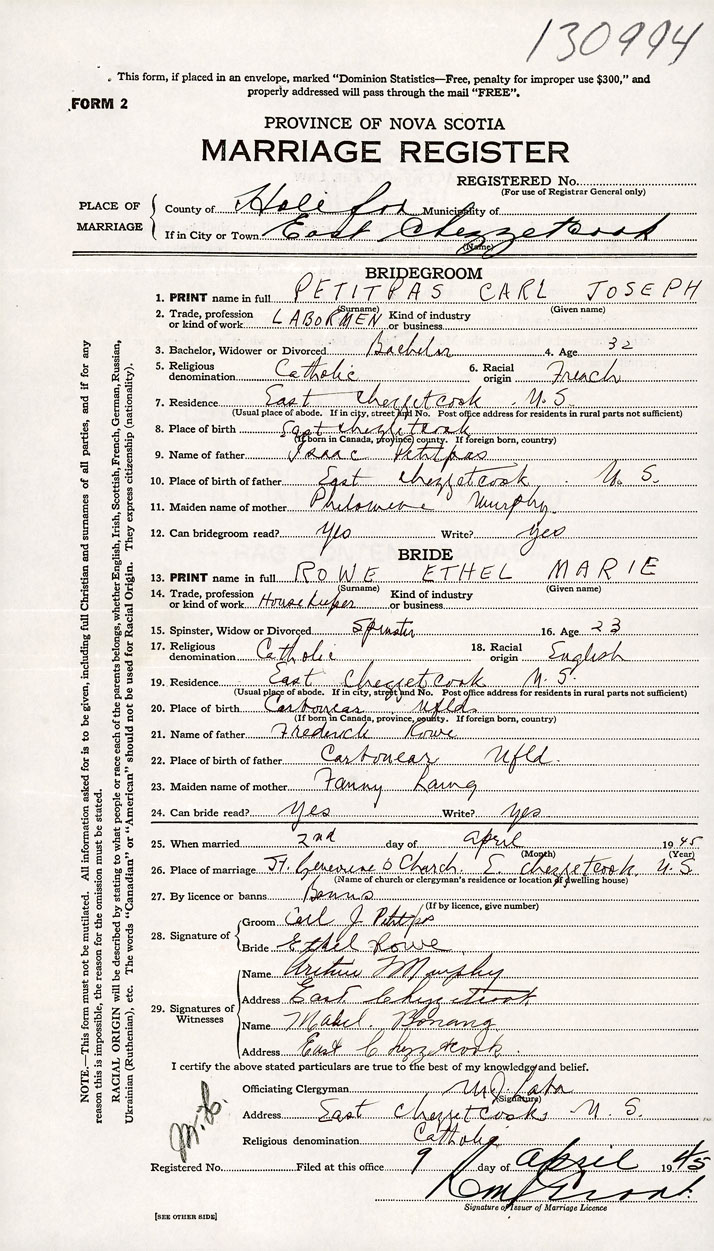 130994
This form, if placed in an envelope, marked "Dominion Statistics—Free, penalty for improper use $300," and
properly addressed will pass through the mail "FREE".
FORM 2
PROVINCE OF NOVA SCOTIA
MARRIAGE REGISTER
REGISTERED No.
(For use of Registrar General only)
PLACE OF MARRIAGE
County of Halifax Municipality of
If in City or Town East Chezzetcook
(Name)
BRIDEGROOM
1. PRINT name in full PETITPAS CARL JOSEPH
(Surname) (Given name)
2. Trade, profession or kind of work LABORMEN Kind of industry or business
3. Bachelor, Widower or Divorced Bachelor 4. Age 32
5. Religious denomination Catholic 6. Racial origin French
7. Residence East Chezzetcook N.S.
(Usual place of abode. If in city, street and No. Post office address for residents in rural parts not sufficient)
8. Place of birth East Chezzetcook
(If born in Canada, province, county. If foreign born, country)
9. Name of father Isaac Petitpas
10. Place of birth of father East Chezzetcook N. S.
11. Maiden name of mother Philomene Murphy
12. Can bridegroom read? Yes Write? yes
BRIDE
13. PRINT name in full ROWE ETHEL MARIE
(Surname) (Given name)
14. Trade, profession or kind of work Housekeeper Kind of industry or business
15. Spinster, Widow or Divorced Spinster 16. Age 23
17. Religious denomination Catholic 18. Racial origin English
19. Residence East Chezzetcook N.S.
(Usual place of abode. If in city, street and No. Post office address for residents in rural parts not sufficient)
20. Place of birth Carbonear Nfld
(If born in Canada, province, county. If foreign born, country)
21. Name of father Frederick Rowe
22. Place of birth of father Carbonear Nfld.
23. Maiden name of mother Fanny
24. Can bride read? Yes Write? yes
25. When married 2nd day of April 1945
(Month) (Year)
26. Place of marriage St. Church E. Chezzetcook. N.S
(Name of church or clergyman's residence or location of dwelling house)
27. By licence or banns Banns
(If by licence, give number)
28. Signature of
Groom Carl J Petitpas
Bride Ethel Rowe
29. Signatures of Witnesses
Name Arthur Murphy
Address East Chezzetcook
Name Mabel Bonang
Address East Chezzetcook.
I certify the above stated particulars are true to the best of my knowledge and belief.
Officiating Clergyman
(Signature)
Address East Chezzetcook N. S.
Religious denomination Catholic
Registered No. Filed at this office 9 day of April 1945
Signature of Issuer of Marriage Licence
[SEE OTHER SIDE]
NOTE.—This form must not be mutilated. All information asked for is to be given, including full Christian and surnames of all parties, and if for any
reason this is impossible, the reason for the omission must be stated.
RACIAL ORIGIN will be described by stating to what people or race each of the parents belongs, whether English, Irish, Scottish, French, German, Russian,
Ukrainian (Ruthenian), etc. The words "Canadian" or "American" should not be used for Racial Origin. They express citizenship (nationality).